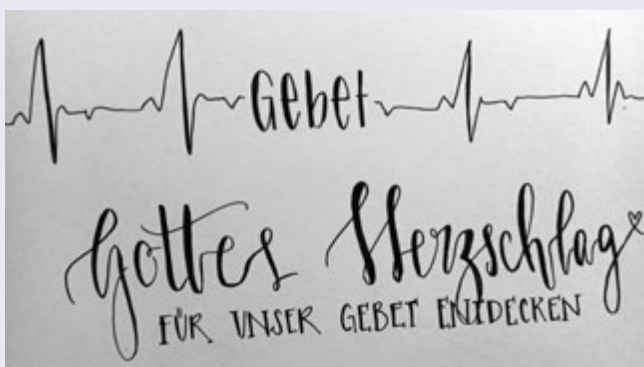 Gebet
Gottes Herzschlag
FÜR UNSER GEBET ENTDECKEN